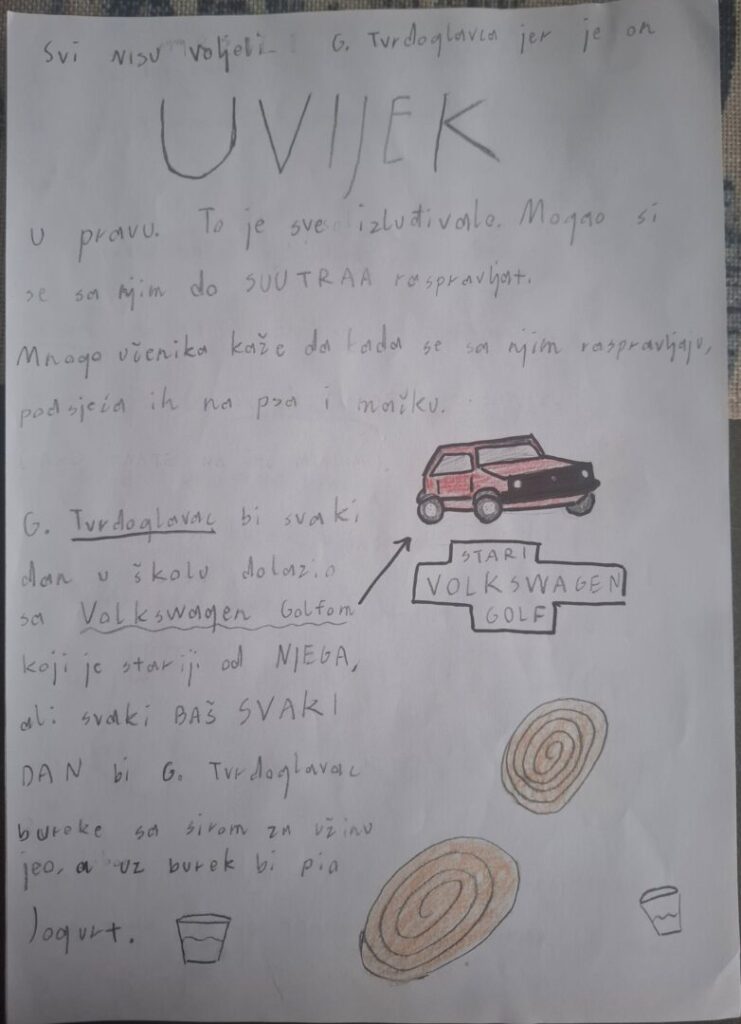 Svi nisu voljeli G. Tvrdoglavca jer je on
UVIJEK
u pravu. To je sve izluđivalo. Mogao si
se sa njim do SUUTRAA raspravljat.
Mnogo učenika kaže da kada se sa njim raspravljaju,
podsjeća ih na psa i mačku.
G. Tvrdoglavac bi svaki
dan u školu dolazio
sa Volkswagen Golfom
koji je stariji od NJEGA,
ali svaki BAŠ SVAKI
DAN bi G. Tvrdoglavac
bureke sa sirom za užinu
jeo, a uz burek bi pia
Jogurt.
STARI
VOLKSWAGEN
GOLF